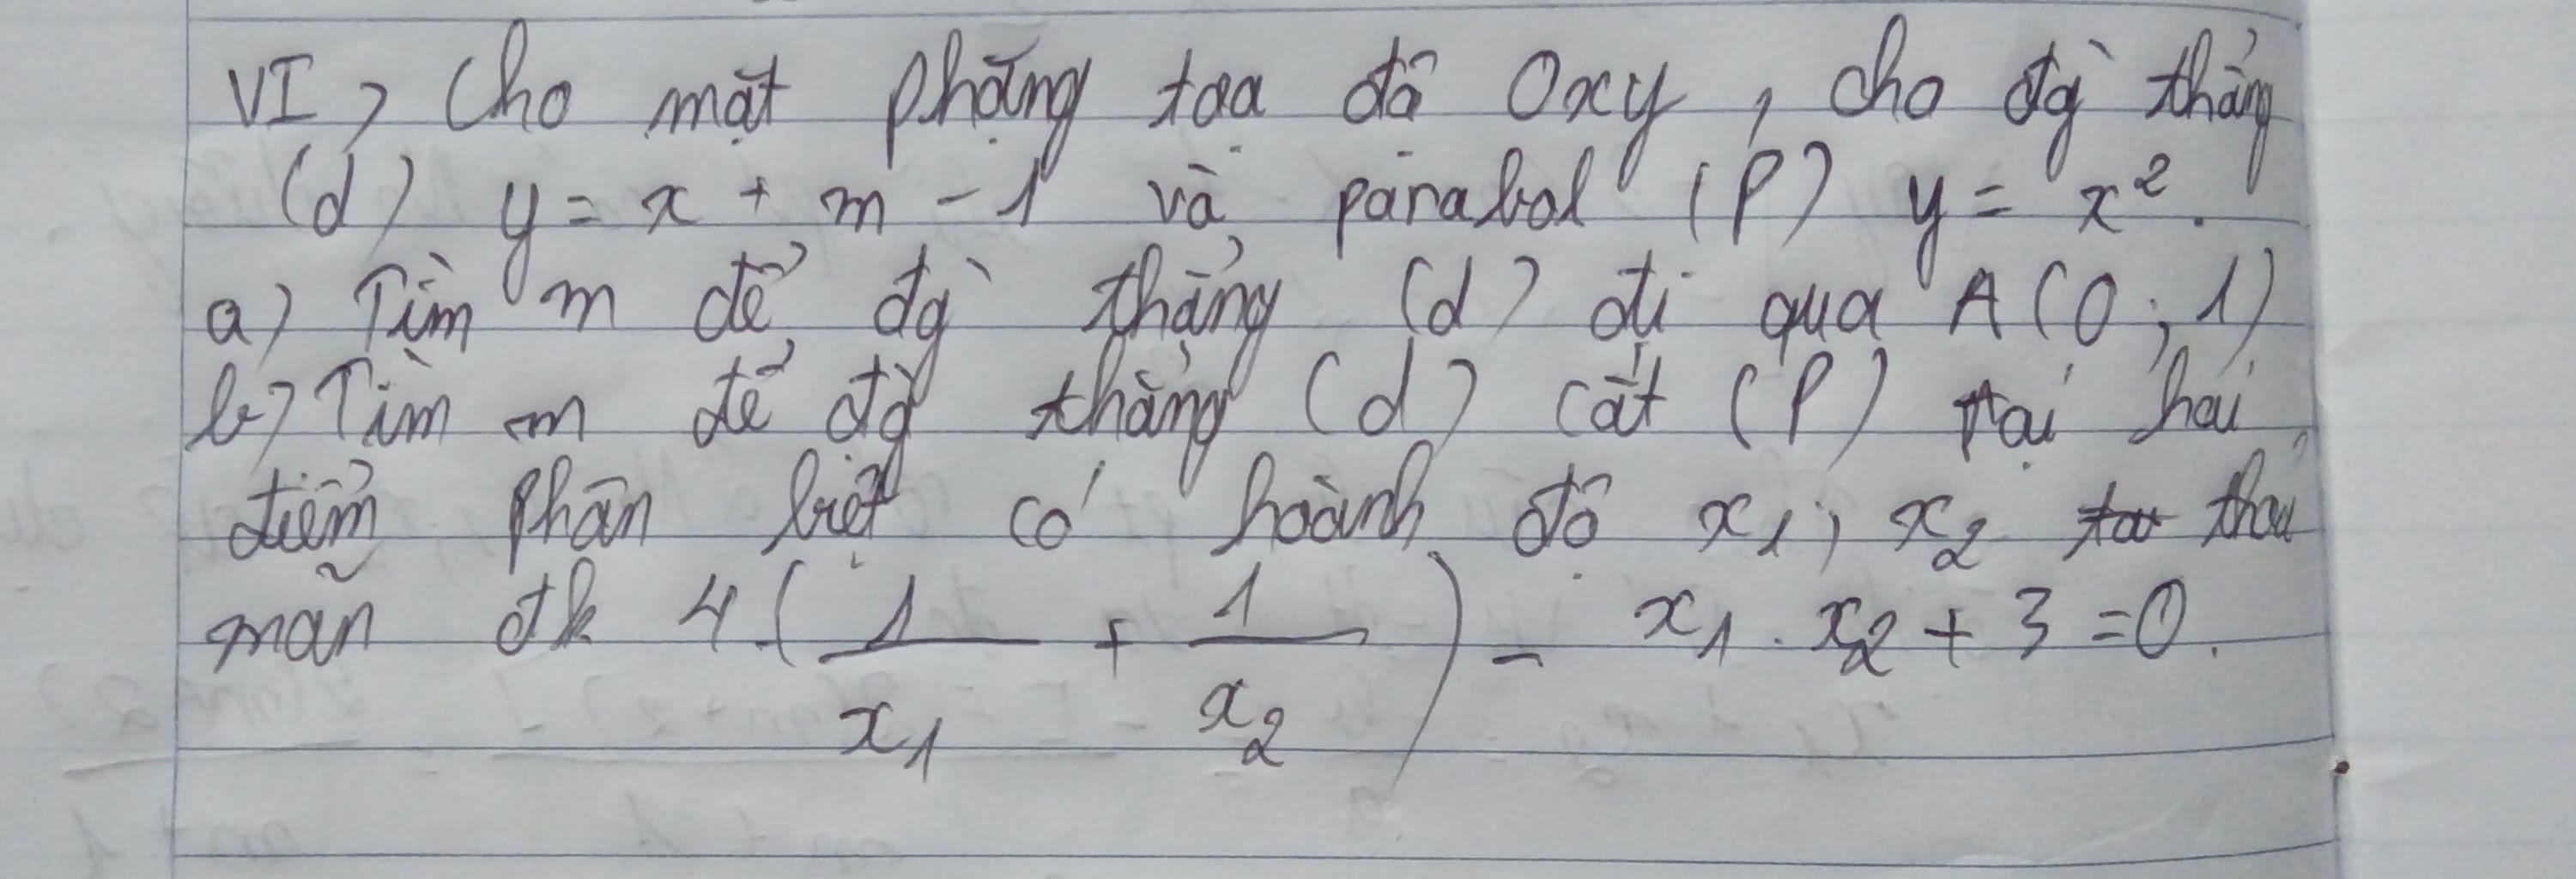 VI, Cho mặt phẳng tọa độ Oxy, cho đg̀ thẳng
(d) y = x + m - 1 và parabol (P) y = x².
a) Tìm m để đg̀ thẳng (d) đi qua A(0; 1)
b) Tìm m để đg̀ thẳng (d) cắt (P) tại hai
điểm phân biệt có hoành độ x₁; x₂ thoả
mãn đk 4.(1/x₁ + 1/x₂) - x₁.x₂ + 3 = 0.